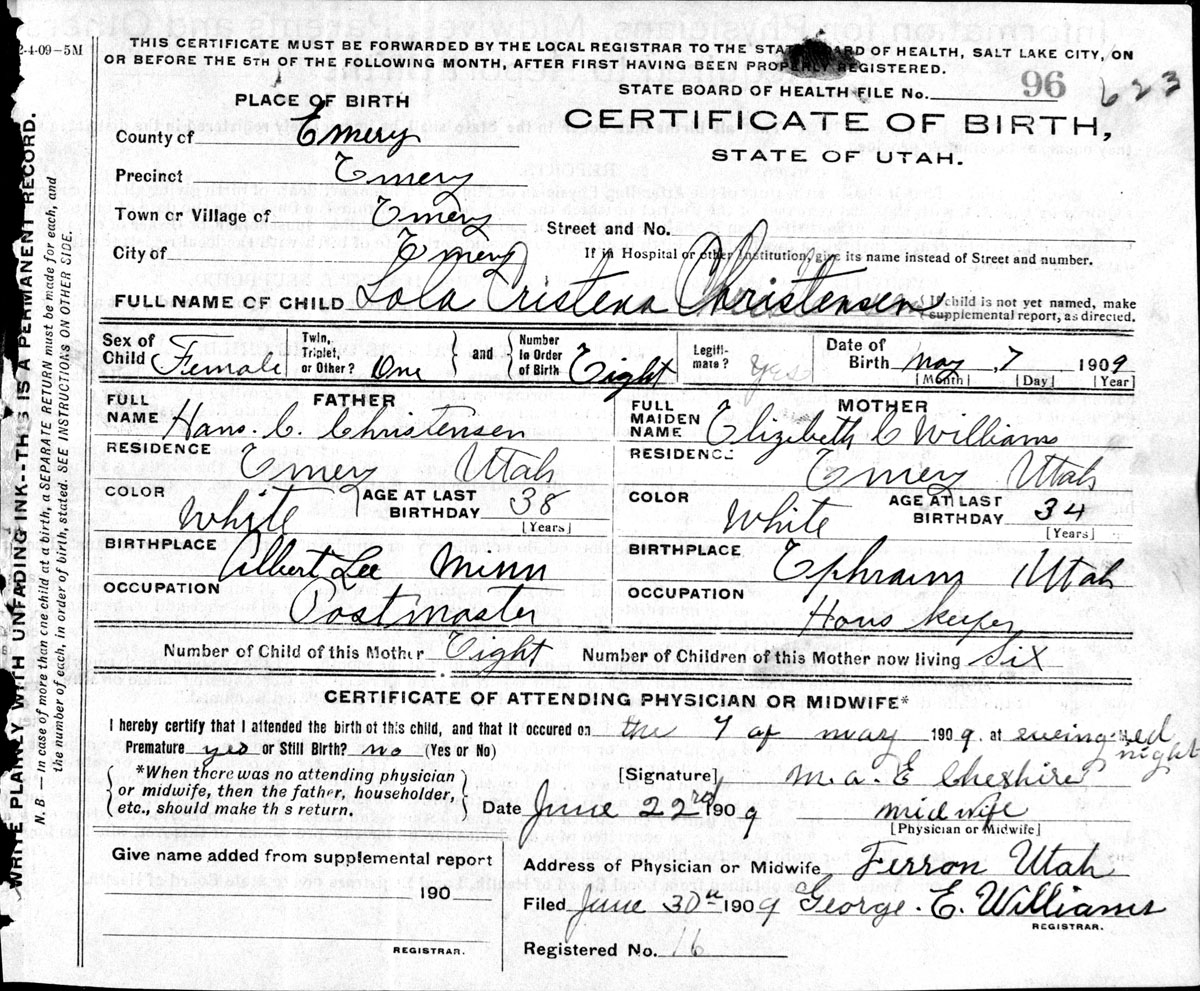 2-4-09-5M
THIS CERTIFICATE MUST BE FORWARDED BY THE LOCAL REGISTRAR TO THE STATE BOARD OF HEALTH, SALT LAKE CITY, ON
OR BEFORE THE 5TH OF THE FOLLOWING MONTH, AFTER FIRST HAVING BEEN PROPERLY REGISTERED.
STATE BOARD OF HEALTH FILE No. 96 623
PLACE OF BIRTH
CERTIFICATE OF BIRTH,
STATE OF UTAH.
County of Emery
Precinct Emery
Town or Village of Emery
Street and No.
City of Emery
If in Hospital or other Institution, give its name instead of Street and number.
FULL NAME OF CHILD Lola Cristena Christensen { If child is not yet named, make
supplemental report, as directed.
Sex of Child Female
Twin, Triplet, or Other? One
and
Number in Order of Birth Eight
Legiti- mate? Yes
Date of Birth May 7 1909
[Month] [Day] [Year]
FATHER
FULL NAME Hans. C. Christensen
RESIDENCE Emery Utah
COLOR White
AGE AT LAST BIRTHDAY 38
[Years]
BIRTHPLACE Albert Lee Minn
OCCUPATION Postmaster
MOTHER
FULL MAIDEN NAME Elizebeth C Williams
RESIDENCE Emery Utah
COLOR White
AGE AT LAST BIRTHDAY 34
[Years]
BIRTHPLACE Ephraim Utah
OCCUPATION Hous Keeper
Number of Child of this Mother Eight Number of Children of this Mother now living Six
CERTIFICATE OF ATTENDING PHYSICIAN OR MIDWIFE*
I hereby certify that I attended the birth of this child, and that it occured on the 7 of may 1909. at M.
night
Premature yes or Still Birth? no (Yes or No)
*When there was no attending physician
or midwife, then the father, householder,
etc., should make this return.
[Signature] M. A. E Cheshire
Date June 22rd 1909 midwife
[Physician or Midwife]
Give name added from supplemental report
190
REGISTRAR.
Address of Physician or Midwife Ferron Utah
Filed June 30th 1909 George. E. Williams
REGISTRAR.
Registered No. 16
WRITE PLAINLY WITH UNFADING INK--THIS IS A PERMANENT RECORD.
N. B. — In case of more than one child at a birth, a SEPARATE RETURN must be made for each, and
the number of each, in order of birth, stated. SEE INSTRUCTIONS ON OTHER SIDE.